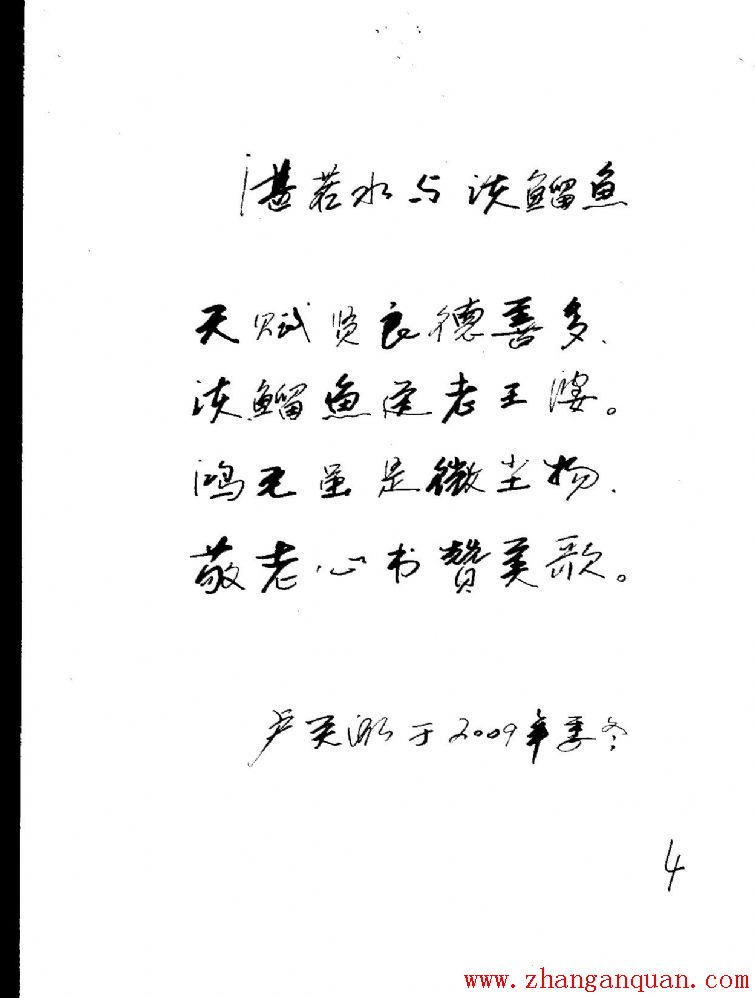 湛若水与淡鰡鱼
天赋贤良德善多.
淡鰡鱼送老王婆。
鸿毛虽是微尘物.
敬老心书赞美歌。
卢美 于2009年季冬
4
www.zhanganquan.com